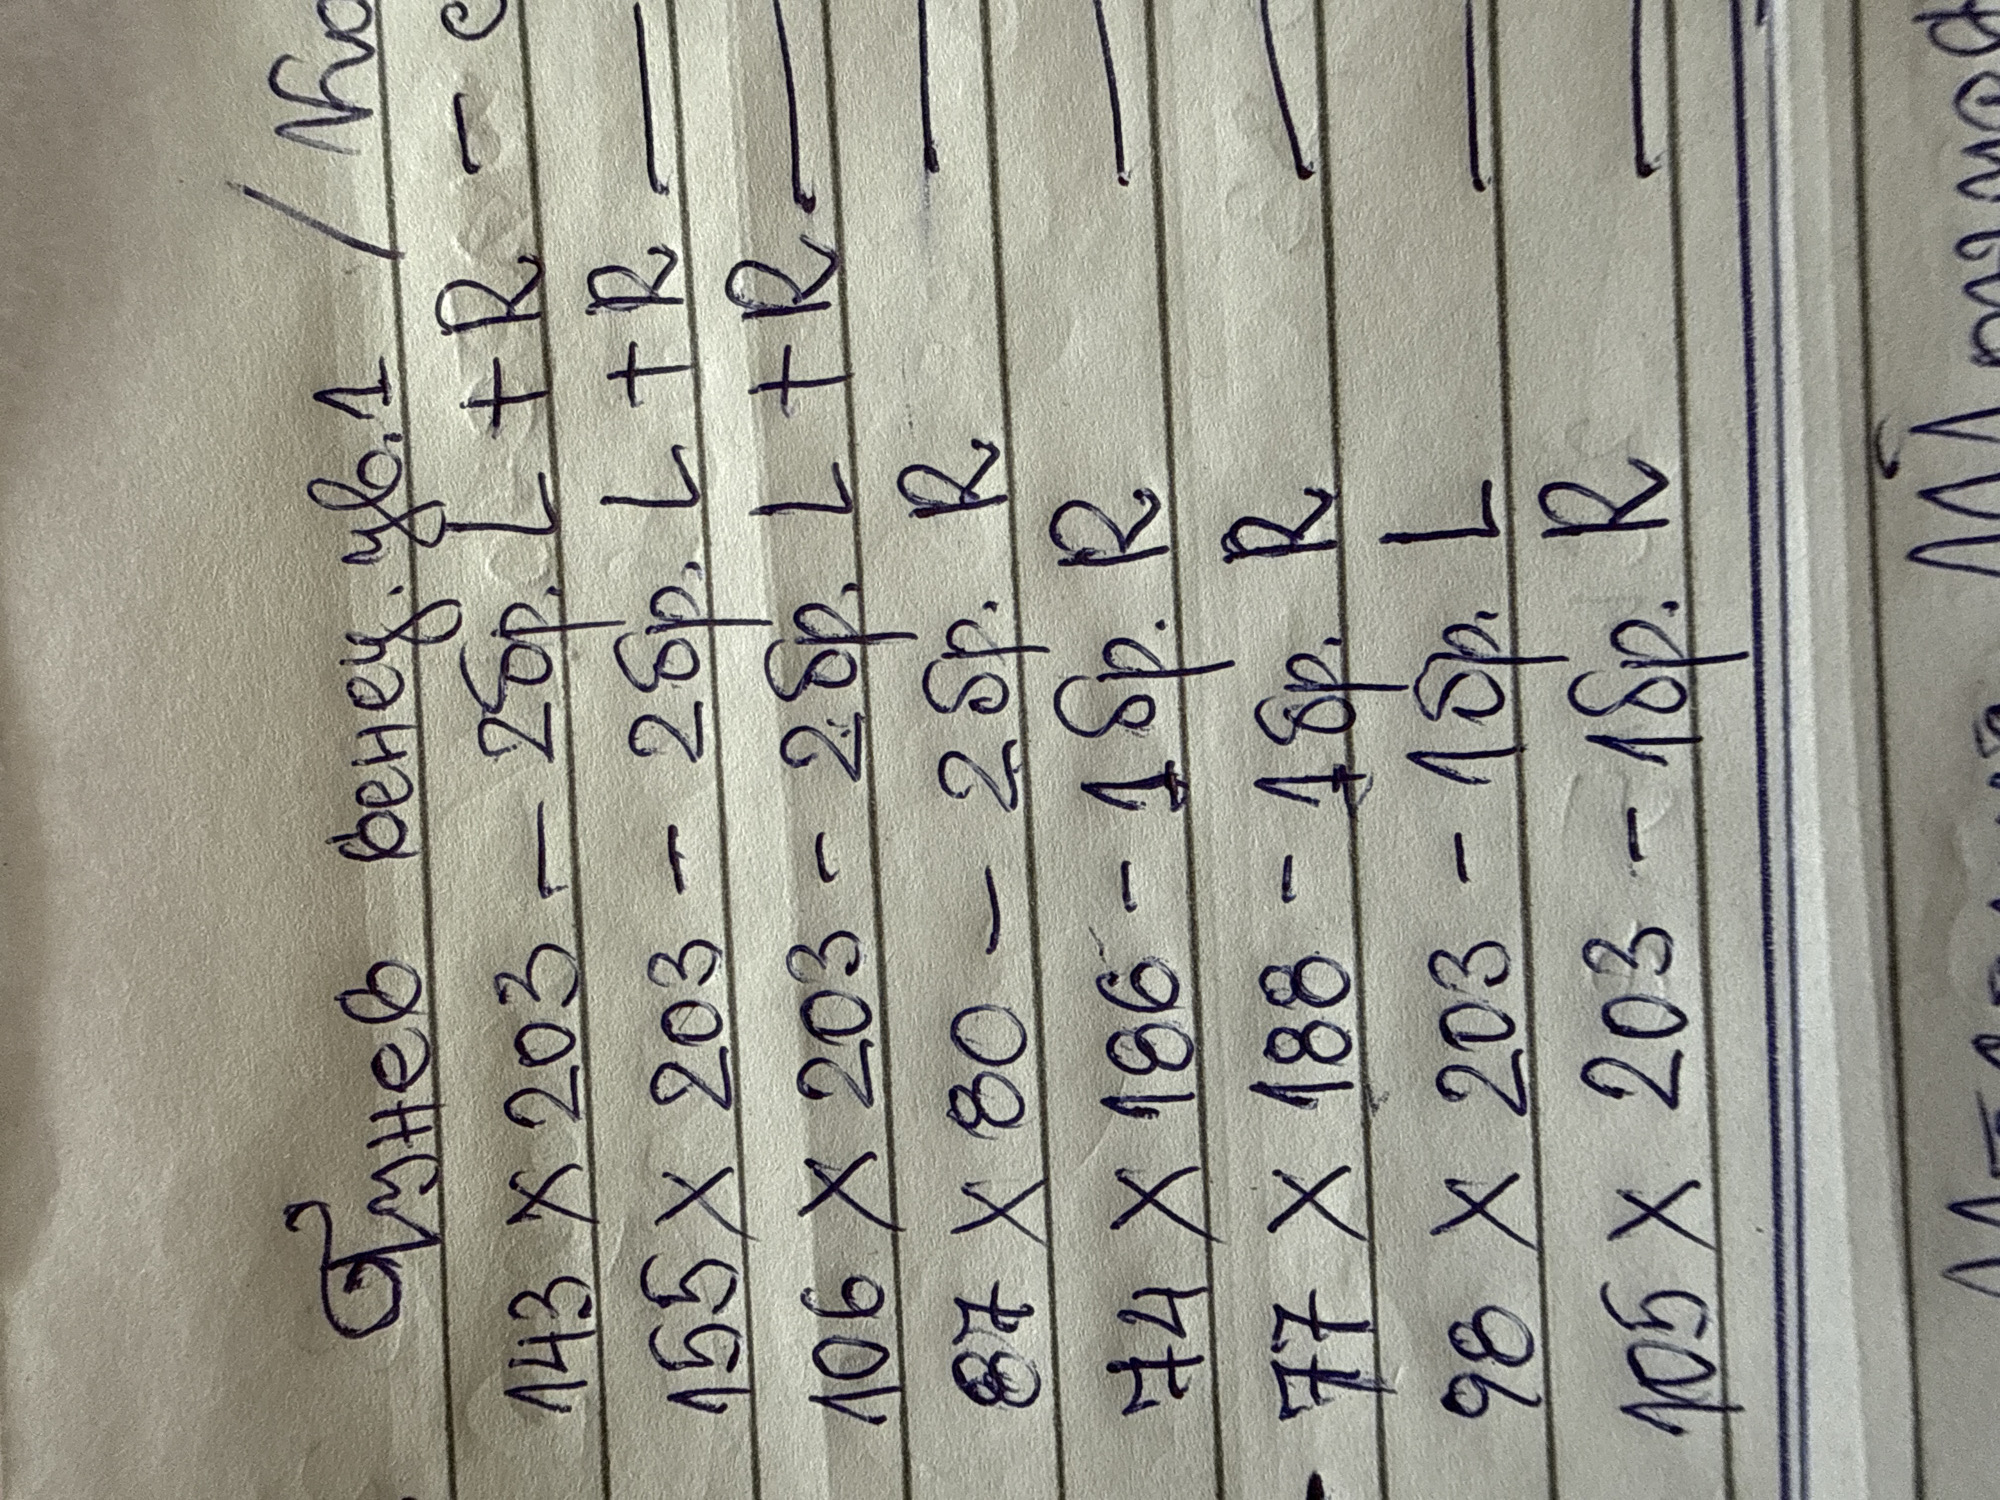 Гунев венец. цв.1 /
143 x 203 - 2бр. L + R -
155 x 203 - 2бр. L + R —
106 x 203 - 2бр. L + R —
87 x 80 - 2бр. R —
74 x 186 - 1бр. R —
77 x 188 - 1бр. R —
98 x 203 - 1бр. L —
105 x 203 - 1бр. R —